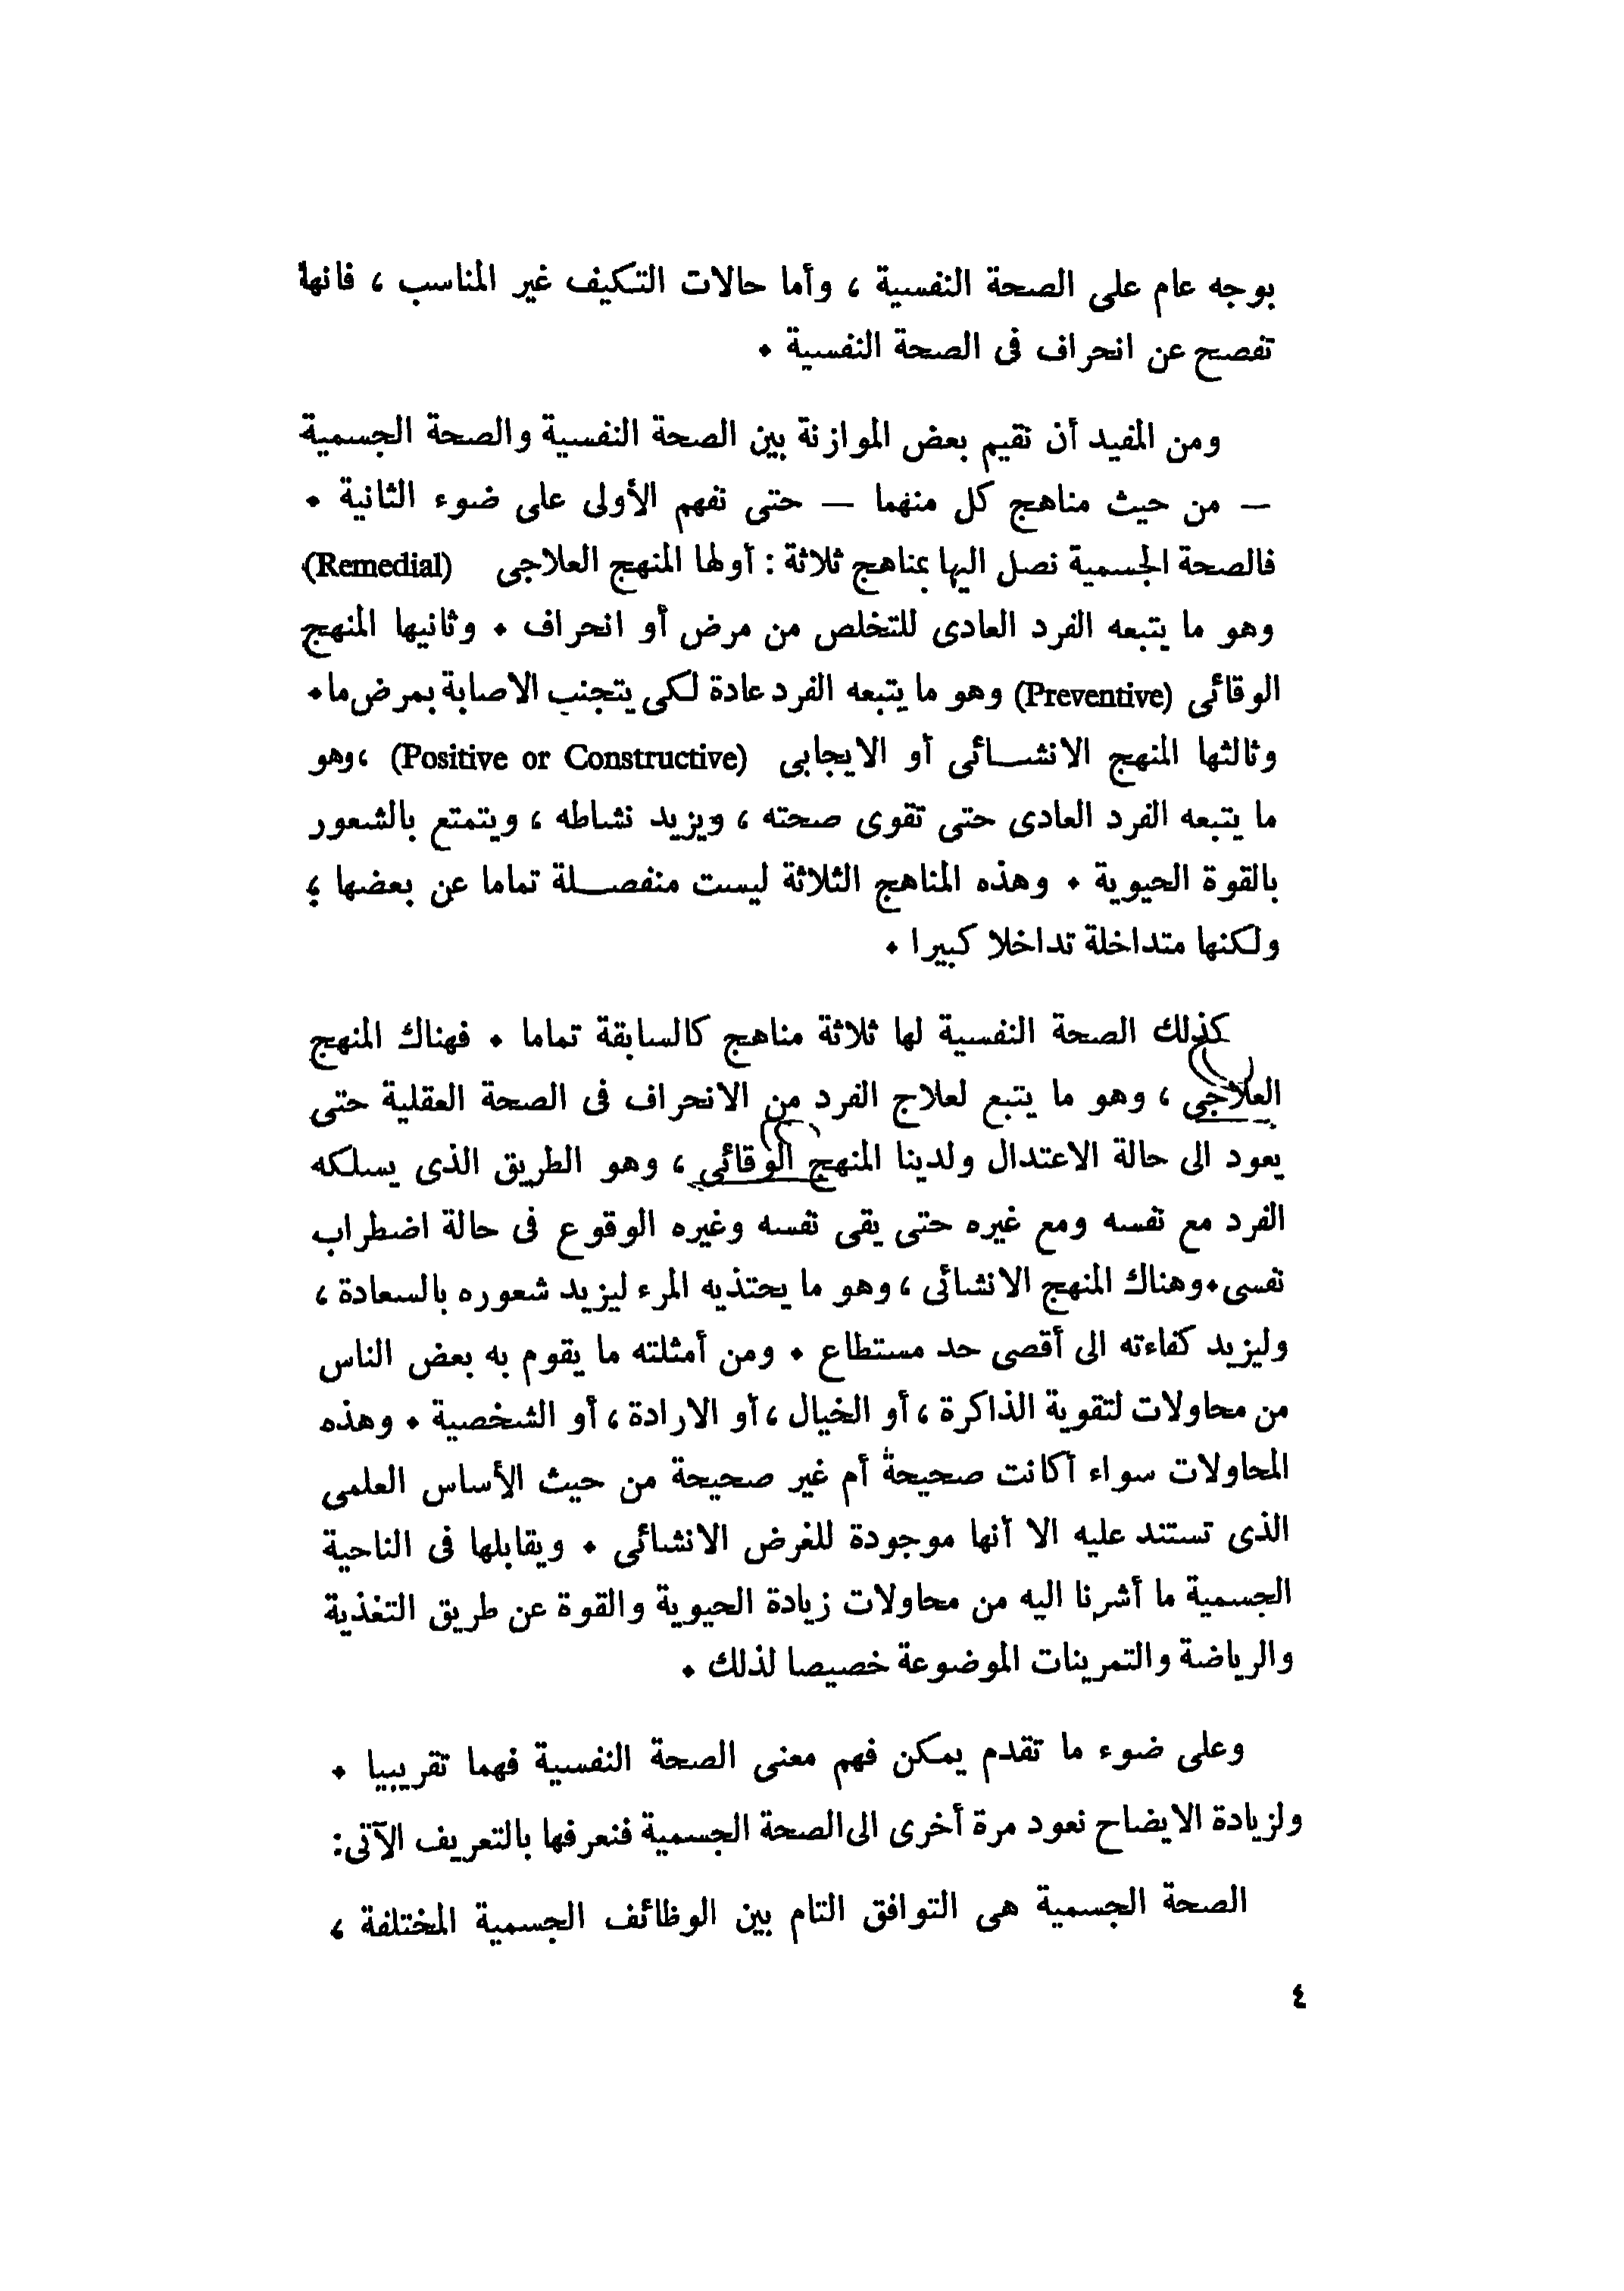 بوجه عام على الصحة النفسية ، وأما حالات التكيف غير المناسب ، فانها
تفصح عن انحراف فى الصحة النفسية ٠
ومن المفيد أن نقيم بعض الموازنة بين الصحة النفسية والصحة الجسمية
— من حيث مناهج كل منهما — حتى تفهم الأولى على ضوء الثانية ٠
فالصحة الجسمية نصل اليها بمناهج ثلاثة : أولها المنهج العلاجى (Remedial)
وهو ما يتبعه الفرد العادى للتخلص من مرض أو انحراف ٠ وثانيها المنهج
الوقائى (Preventive) وهو ما يتبعه الفرد عادة لكى يتجنب الاصابة بمرض ما٠
وثالثها المنهج الانشائى أو الايجابى (Positive or Constructive) ،وهو
ما يتبعه الفرد العادى حتى تقوى صحته ، ويزيد نشاطه ، ويتمتع بالشعور
بالقوة الحيوية ٠ وهذه المناهج الثلاثة ليست منفصلة تماما عن بعضها ؛
ولكنها متداخلة تداخلا كبيرا ٠
كذلك الصحة النفسية لها ثلاثة مناهج كالسابقة تماما ٠ فهناك المنهج
العلاجى ، وهو ما يتبع لعلاج الفرد من الانحراف فى الصحة العقلية حتى
يعود الى حالة الاعتدال ولدينا المنهج الوقائى ، وهو الطريق الذى يسلكه
الفرد مع نفسه ومع غيره حتى يقى نفسه وغيره الوقوع فى حالة اضطراب
نفسى٠وهناك المنهج الانشائى ، وهو ما يحتذيه المرء ليزيد شعوره بالسعادة ،
وليزيد كفاءته الى أقصى حد مستطاع ٠ ومن أمثلته ما يقوم به بعض الناس
من محاولات لتقوية الذاكرة ، أو الخيال ، أو الارادة ، أو الشخصية ٠ وهذه
المحاولات سواء أكانت صحيحة أم غير صحيحة من حيث الأساس العلمى
الذى تستند عليه الا أنها موجودة للغرض الانشائى ٠ ويقابلها فى الناحية
الجسمية ما أشرنا اليه من محاولات زيادة الحيوية والقوة عن طريق التغذية
والرياضة والتمرينات الموضوعة خصيصا لذلك ٠
وعلى ضوء ما تقدم يمكن فهم معنى الصحة النفسية فهما تقريبيا ٠
ولزيادة الايضاح نعود مرة أخرى الى الصحة الجسمية فنعرفها بالتعريف الآتى:
الصحة الجسمية هى التوافق التام بين الوظائف الجسمية المختلفة ،
٤